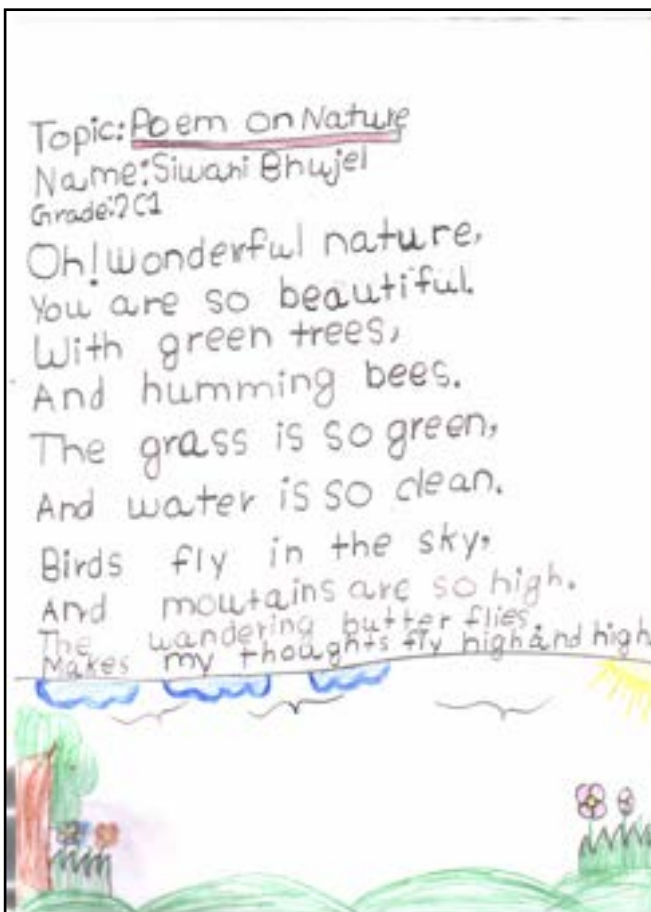 Topic: Poem on Nature
Name: Siwani Bhujel
Grade: 2C1
Oh! wonderful nature,
You are so beautiful.
With green trees,
And humming bees.
The grass is so green,
And water is so clean.
Birds fly in the sky,
And moutains are so high.
The wandering butter flies,
Makes my thoughts fly high and high